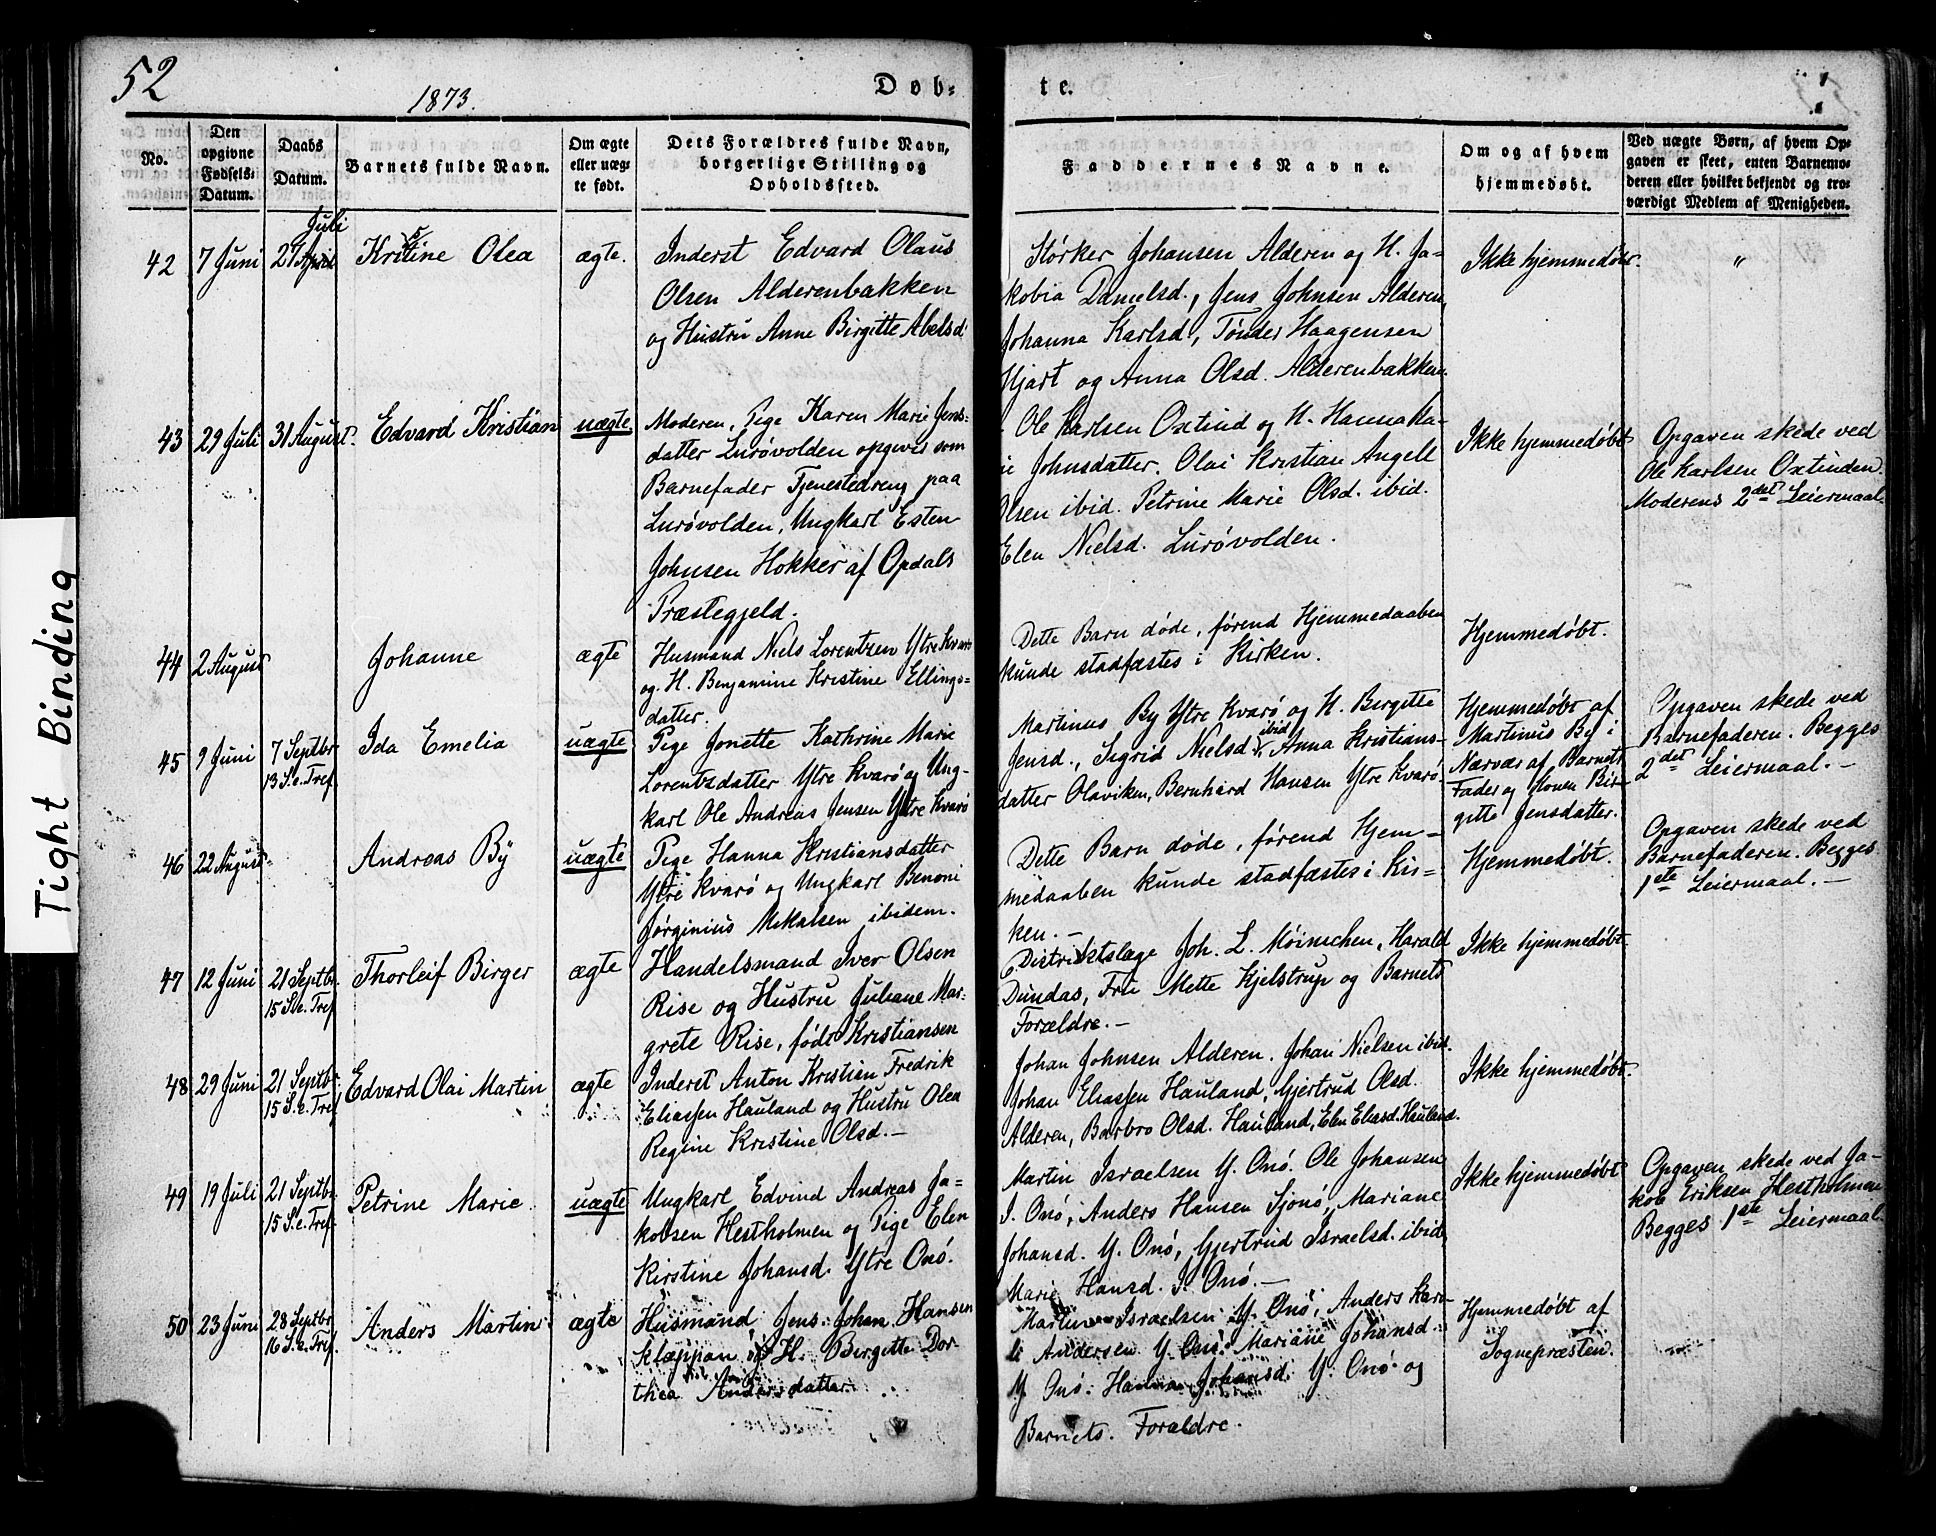 52
1873.
Døb-
te.
No.
Den opgivne Fødsels-Datum.
Daabs Datum.
Barnets fulde Navn.
Om ægte eller uægte født.
Dets Forældres fulde Navn, borgerlige Stilling og Opholdsted.
Faddernes Navne.
Om og af hvem hjemmedøbt.
Ved uægte Børn, af hvem Opgaven er skeet, enten Barnemoderen eller hvilket bekjendt og troværdigt Medlem af Menigheden.
42
7 Juni
27 April Juli
Kristine Olea
ægte.
Inderst Edvard Olaus
Olsen Alderenbakken
og Hustru Anne Birgitte Abelsd.
Størker Johansen Alderen og H. Ja-
kobia Danielsd., Jens Johnsen Alderen,
Johanna Karlsd, Tønder Haagensen
Hjart og Anna Olsd. Alderenbakken.
Ikke hjemmedøbt.
"
43
29 Juli
31 August.
Edvard Kristian
uægte
Moderen, Pige Karen Marie Jens-
datter Lurøvolden opgiver som
Barnefader Tjenestedreng paa
Lurøvolden, Ungkarl Esten
Johnsen Hokker af Opdals
Præstegjeld.
Ole Karlsen Oxtind og H. Hanna Ma-
rie Johnsdatter. Olai Kristian Angell
Olsen ibid. Petrine Marie Olsd. ibid.
Elen Nielsd. Lurøvolden.
Ikke hjemmedøbt
Opgaven skede ved
Ole Karlsen Oxtinden.
Moderens 2det Leiermaal.
44
2 August
Johanne
ægte
Husmand Niels Lorentzen Ytre Kvarø
og H. Benjamine Kristine Ellings-
datter.
Dette Barn døde, førend Hjemmedaaben
kunde stadfæstes i Kirken.
Hjemmedøbt.
45
9 Juni
7 Septbr.
13 S.e. Tref.
Ida Emelia
uægte
Pige Jonette Kathrine Marie
Lorentsdatter Ytre Kvarø og Ung-
karl Ole Andreas Jensen Ytre Kvarø
Martinus By Ytre Kvarø og H. Birgitte
Jensd., Sigrid Nielsd. ibid, Anna Kristians-
datter Olaviken, Bernhard Hansen Ytre Kvarø
Hjemmedøbt af
Martinus By i
Nærvær af Barnets
Fader og Konen Bir-
gitte Jensdatter.
Opgaven skede ved
Barnefaderen. Begges
2det Leiermaal.-
46
22 August
Andreas By
uægte
Pige Hanna Kristiansdatter
Ytre Kvarø og Ungkarl Benoni
Jørginius Mikalsen ibidem.
Dette Barn døde, førend Hjem-
medaaben kunde stadfæstes i Kir-
ken.-
Hjemmedøbt.
Opgaven skede ved
Barnefaderen. Begges
1ste Leiermaal.-
47
12 Juni
21 Septbr.
15 S.e. Tref.
Thorleif Birger
ægte
Handelsmand Iver Olsen
Rise og Hustru Juliane Mar-
grete Rise, født Kristiansen
Distriktslæge Joh. L. Møinichen, Harald
Dundas, Fru Mette Kjelstrup og Barnets
Forældre.-
Ikke hjemmedøbt.
48
29 Juni
21 Septbr.
15 S.e. Tref
Edvard Olai Martin
ægte
Inderst Anton Kristian Fredrik
Eliassen Hauland og Hustru Olea
Regine Kristine Olsd.-
Johan Johnsen Alderen. Johan Nielsen ibid.
Johan Eliassen Hauland, Gjertrud Olsd.
Alderen, Barbro Olsd. Hauland, Elen Eliasd. Hauland.
Ikke hjemmedøbt.
49
19 Juli
21 Septbr.
15 S.e. Tref.
Petrine Marie
uægte
Ungkarl Edvind Andreas Ja-
kobsen Hestholmen og Pige Elen
Kirstine Johansd. Ytre Onø.
Martin Israelsen Y. Onø. Ole Johansen
I. Onø, Anders Hansen Sjonø, Mariane
Johansd. Y. Onø, Gjertrud Israelsd. ibid,
Marie Hansd. I. Onø.-
Ikke hjemmedøbt
Opgaven skede ved Ja-
kob Eriksen Hestholmen
Begges 1ste Leiermaal.
50
23 Juni
28 Septbr.
16 S.e. Tref.
Anders Martin
ægte
Husmand Jens Johan Hansen
Klæppan og H. Birgitte Dor-
thea Andersdatter.
Martin Israelsen Y. Onø, Anders
Andersen Y. Onø. Mariane Johansd.
Y. Onø. Hanna Johansd. Y. Onø og
Barnets Forældre.
Hjemmedøbt af
Sognepræsten.
Tight Binding